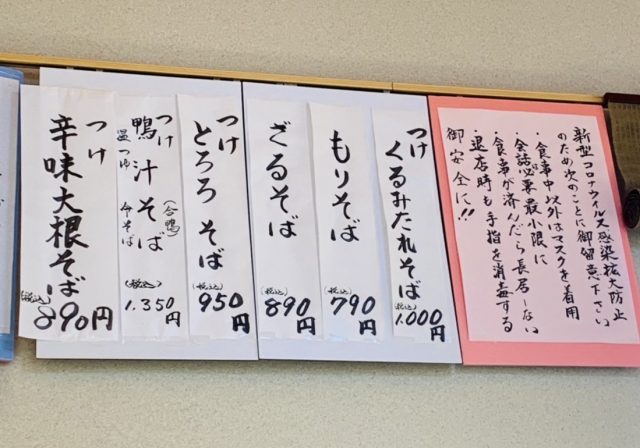 新型コロナウイルス感染拡大防止
のため次のことに御留意下さい
・食事中以外はマスクを着用
・会話必要最小限に
・食事が済んだら長居しない
退店時も手指を消毒する
御安全に!!
つけ
くるみだれそば
(税込)
1.000円
もりそば
(税込)
790円
ざるそば
(税込)
890円
つけ
とろろそば
(税込)
950円
つけ
鴨汁そば
(合鴨)
温つゆ 冷そば
(税込)
1.350円
つけ
辛味大根そば
(税込)
890円